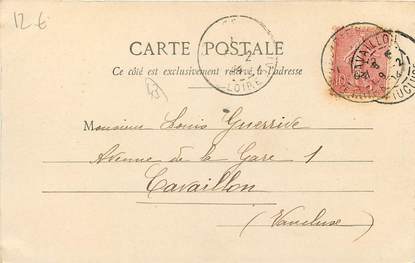 12 €
CARTE POSTALE
Ce côté est exclusivement réservé à l'adresse
LOIRE
CAVAILLON
VAUCLUSE
Monsieur Louis Guerrive
Avenue de la Gare 1
Cavaillon
(Vaucluse)